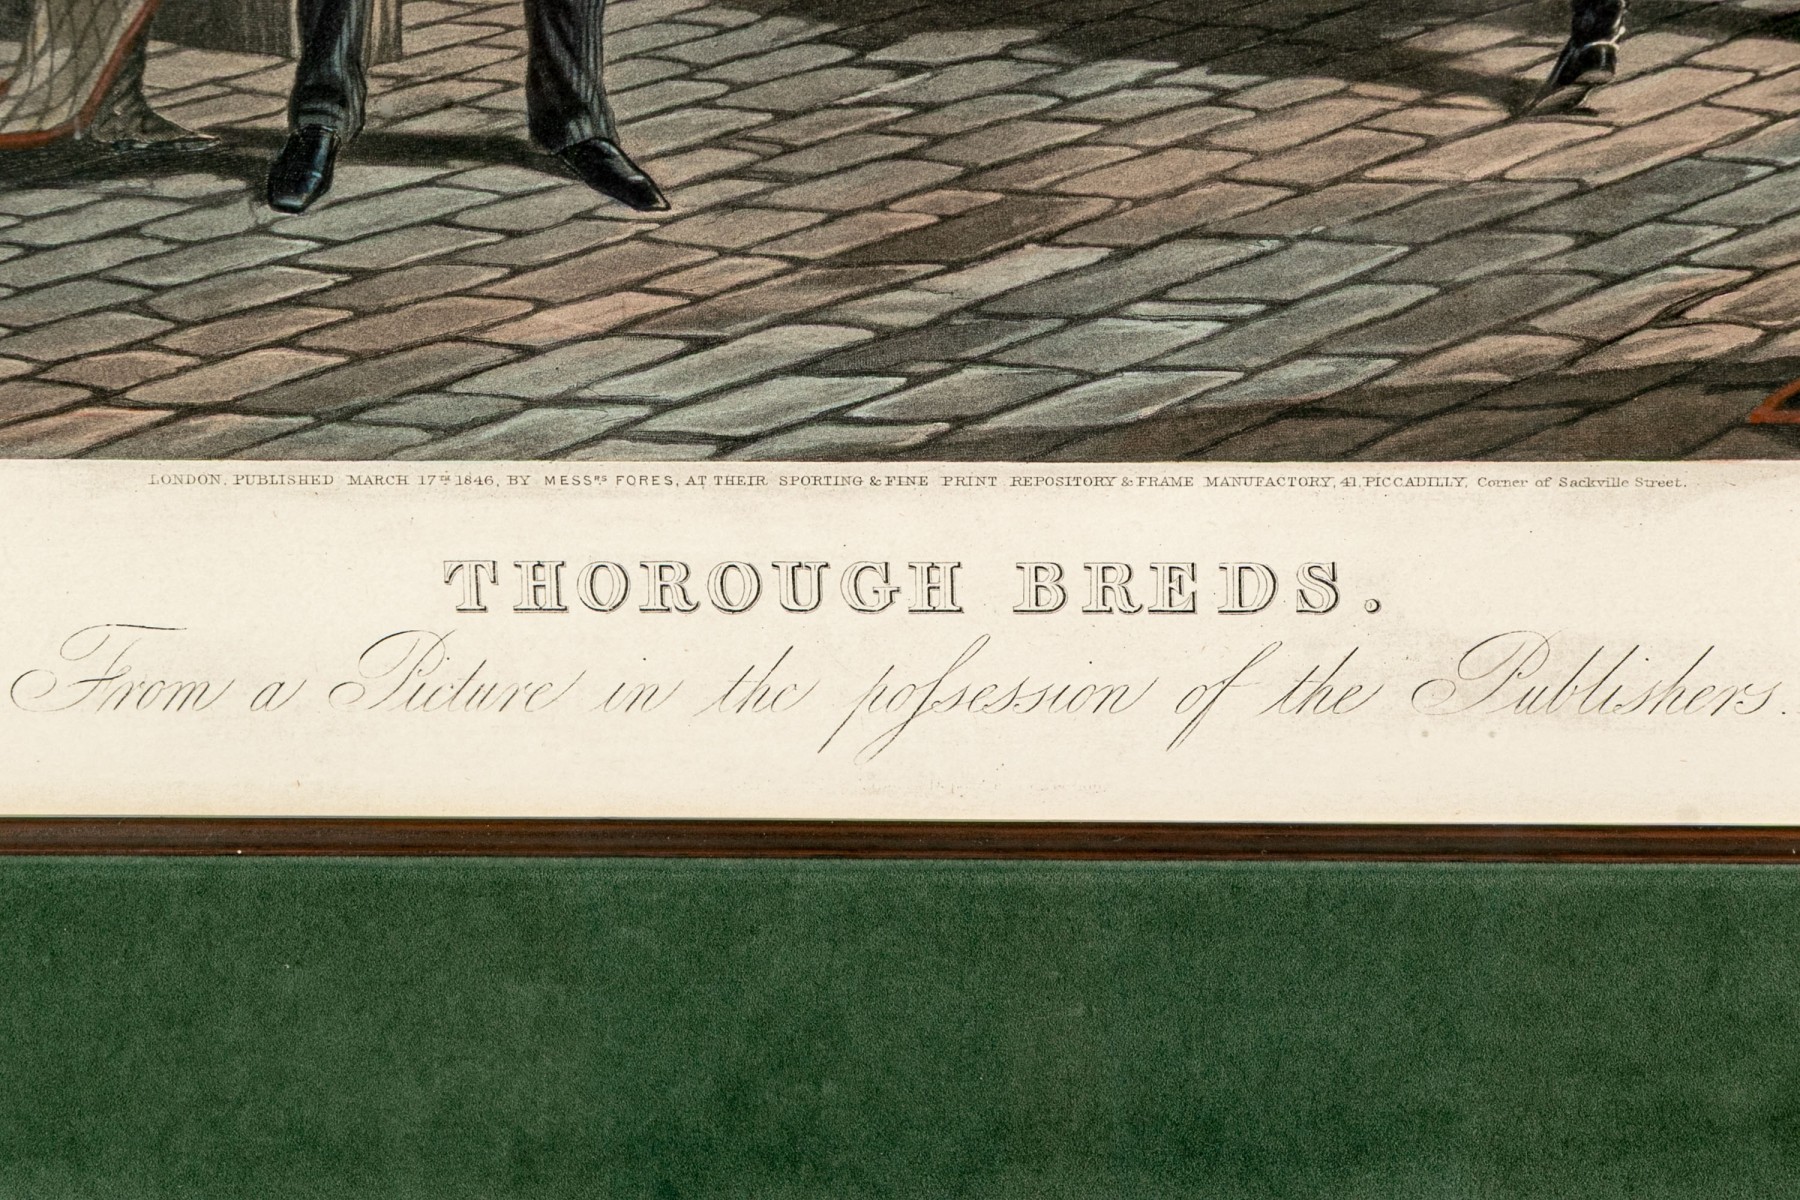 LONDON, PUBLISHED MARCH 17TH 1846, BY MESSRS FORES, AT THEIR SPORTING & FINE PRINT REPOSITORY & FRAME MANUFACTORY, 41, PICCADILLY, Corner of Sackville Street.
THOROUGH BREDS.
From a Picture in the poſsession of the Publishers.